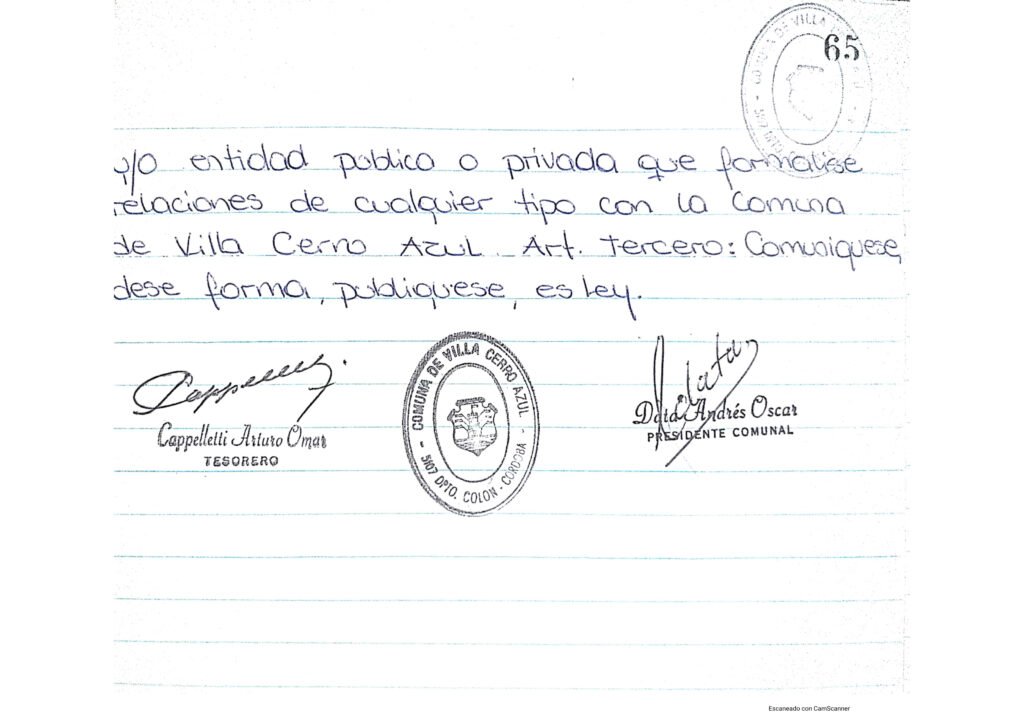 65
y/o entidad publica o privada que formalise
relaciones de cualquier tipo con la Comuna
de Villa Cerro Azul. Art. Tercero: Comuniquese,
dese forma, publiquese, es ley.
COMUNA DE VILLA CERRO AZUL - 5107 DPTO. COLON - CORDOBA -
Cappelletti Arturo Omar
TESORERO
Andrés Oscar
PRESIDENTE COMUNAL
Escaneado con CamScanner